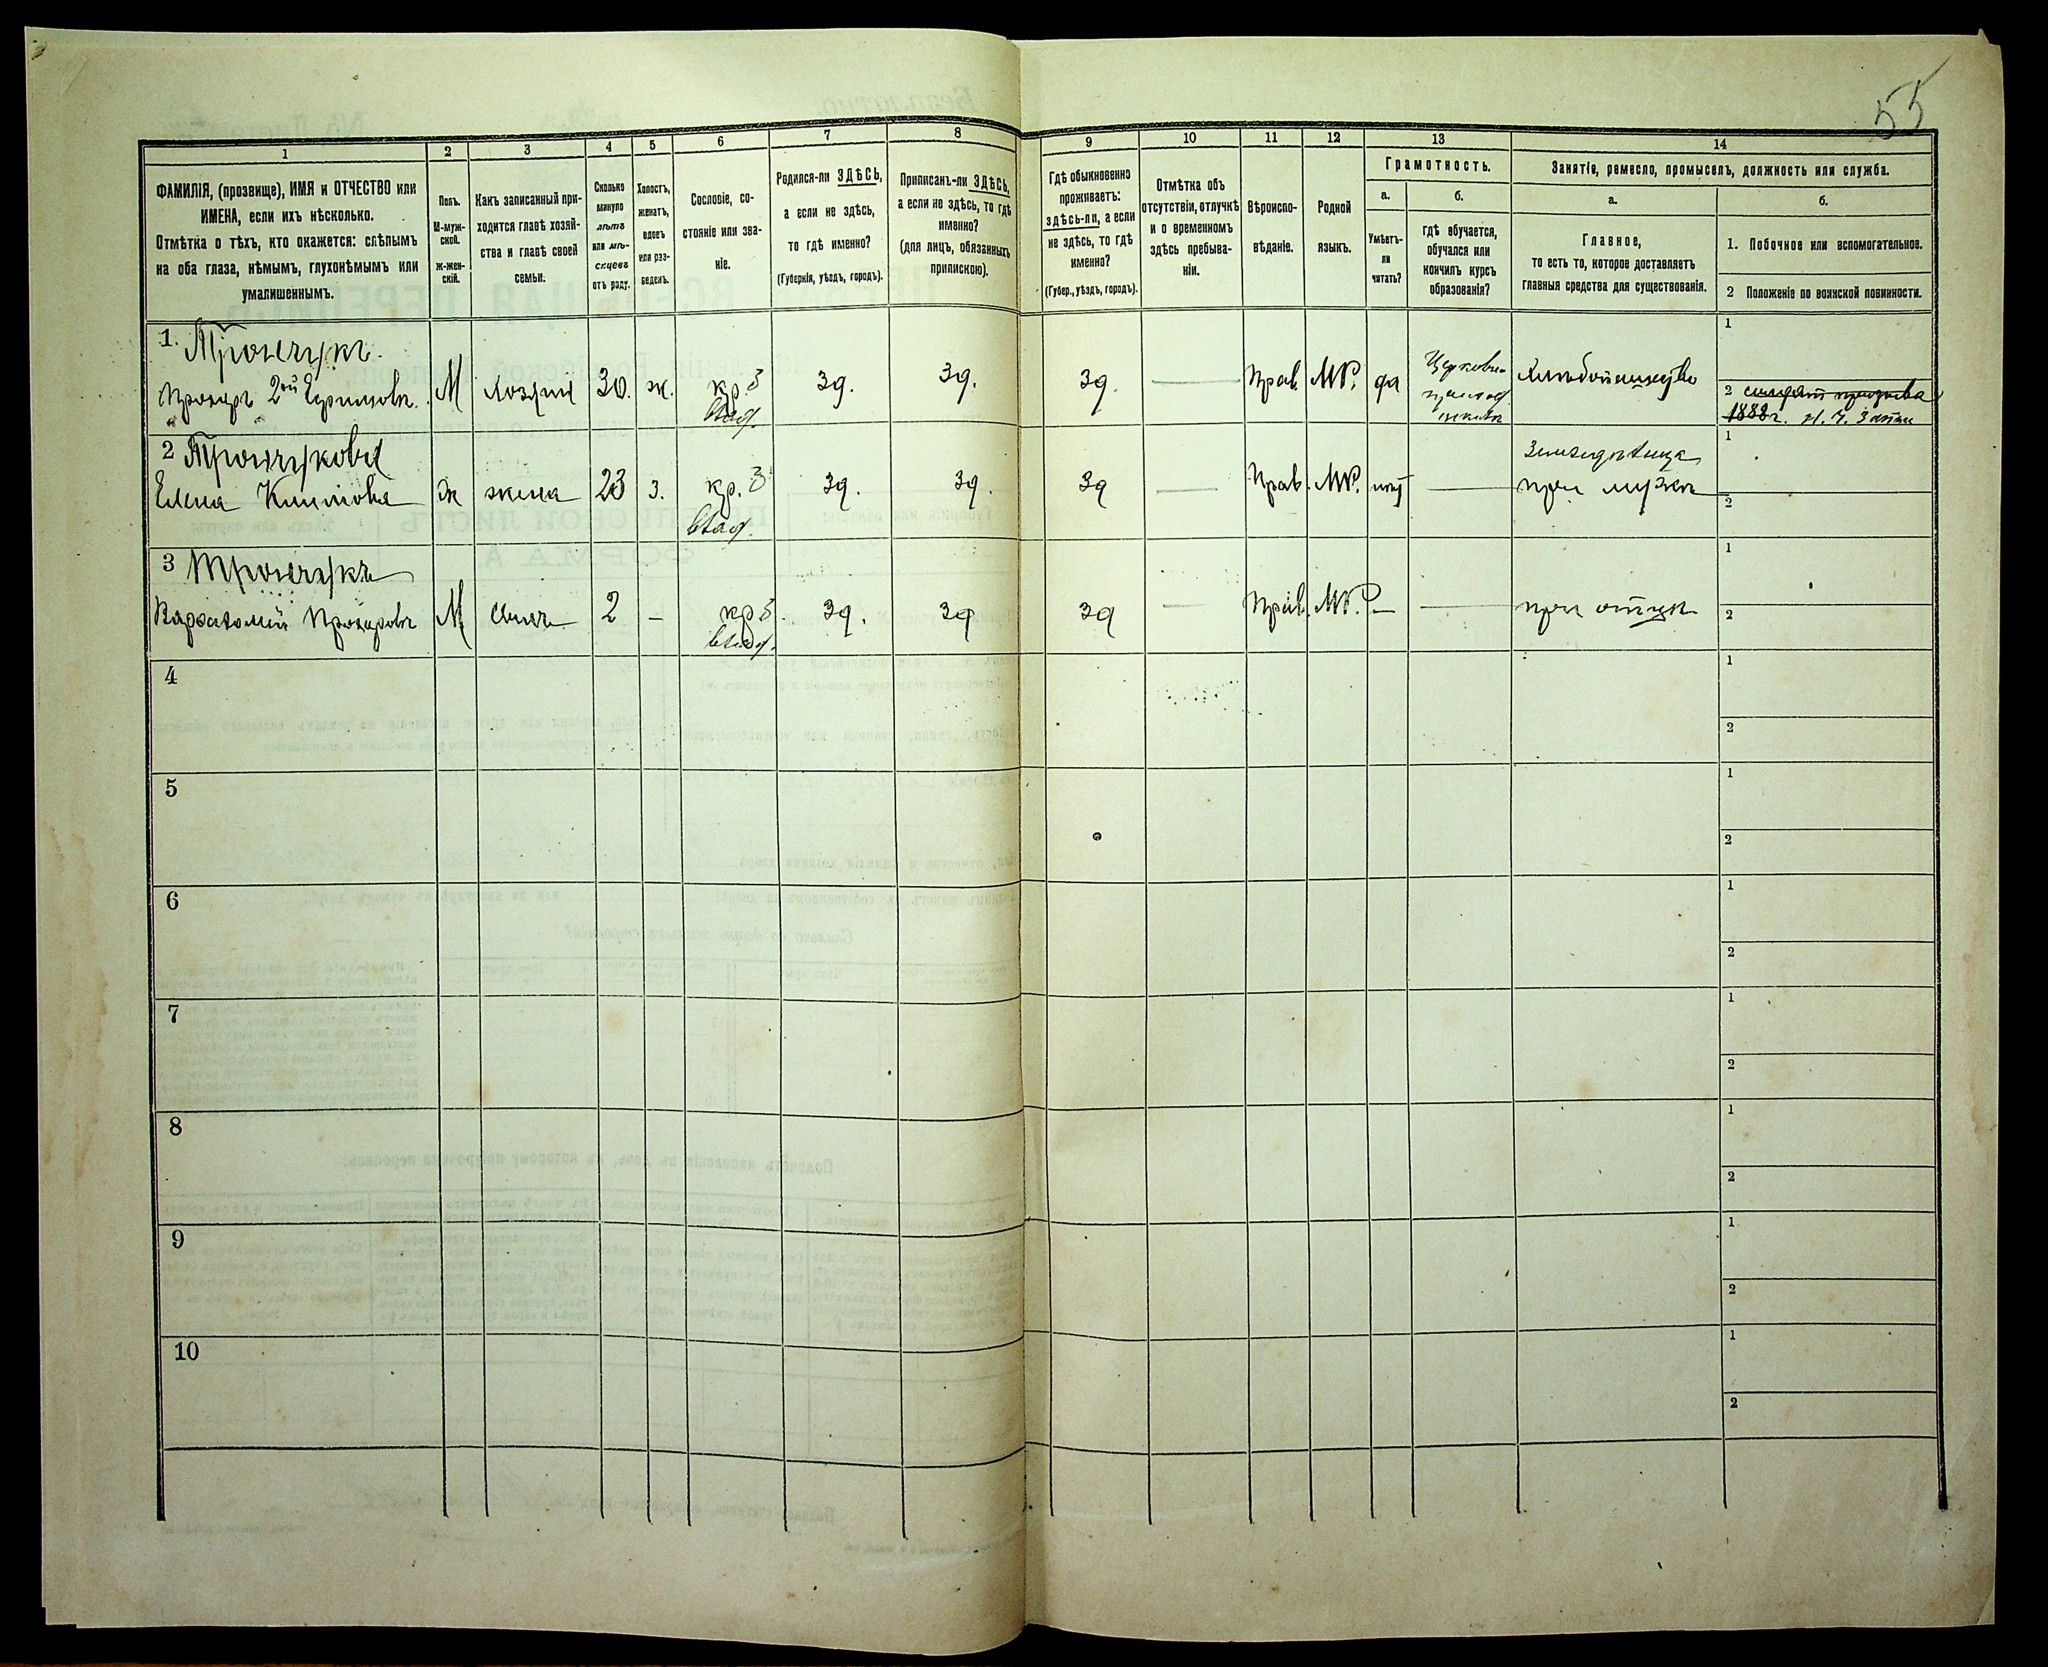 55
1
2
3
4
5
6
7
8
9
10
11
12
13
14
ФАМИЛІЯ, (прозвище), ИМЯ и ОТЧЕСТВО или
ИМЕНА, если ихъ нѣсколько.
Отмѣтка о тѣхъ, кто окажется: слѣпымъ
на оба глаза, нѣмымъ, глухонѣмымъ или
умалишеннымъ.
Полъ.
М-муж-
ской.
ж-жен-
скій.
Какъ записанный при-
ходится главѣ хозяй-
ства и главѣ своей
семьи.
Сколько
минуло
лѣтъ
или мѣ-
сяцевъ
отъ роду.
Холостъ,
женатъ,
вдовъ
или раз-
веденъ.
Сословіе, со-
стояніе или зва-
ніе.
Родился-ли ЗДѢСЬ,
а если не здѣсь,
то гдѣ именно?
(Губернія, уѣздъ, городъ).
Приписанъ-ли ЗДѢСЬ,
а если не здѣсь, то гдѣ
именно?
(для лицъ, обязанныхъ
припискою).
Гдѣ обыкновенно
проживаетъ:
здѣсь-ли, а если
не здѣсь, то гдѣ
именно?
(Губер., уѣздъ, городъ).
Отмѣтка объ
отсутствіи, отлучкѣ
и о временномъ
здѣсь пребыва-
ніи.
Вѣроиспо-
вѣданіе.
Родной
языкъ.
Грамотность.
а.
б.
Умѣетъ-
ли
читать?
гдѣ обучается,
обучался или
кончилъ курсъ
образованія?
Занятіе, ремесло, промыселъ, должность или служба.
а.
б.
Главное,
то есть то, которое доставляетъ
главныя средства для существованія.
1. Побочное или вспомогательное.
2 Положеніе по воинской повинности.
1.
Прохоръ 2ой
М
Хозяинъ
30.
ж.
кр.
влад.
зд.
зд.
зд.
Прав.
МР.
да
Церковно-
приход
школа
Хлѣбопашество
1
2
1888г.
2
Елена Климова
Ж
жена
23
з.
кр.
влад.
зд.
зд.
зд
Прав.
МР.
нѣт
при мужѣ
1
2
3
Варѳоломей Прохоровъ
М
сынъ
2
–
кр
влад.
зд.
зд
зд
Прав.
МР.
–
при отцѣ
1
2
4
1
2
5
1
2
6
1
2
7
1
2
8
1
2
9
1
2
10
1
2